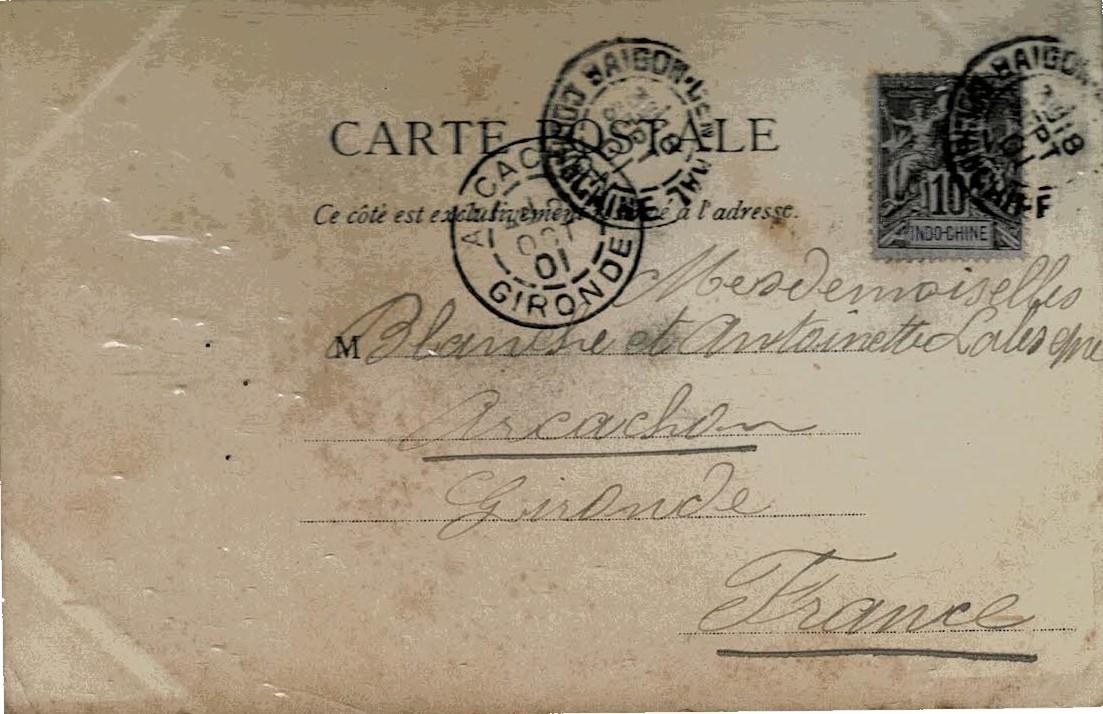 CARTE POSTALE
Ce côté est exclusivement à l'adresse.
SAIGON
COCHINCHINE
SEPT
01
SAIGON
SEPT
01
10
INDO-CHINE
OCT
01
GIRONDE
Mesdemoiselles
M Blanche et Antoinette
Arcachon
Gironde
France